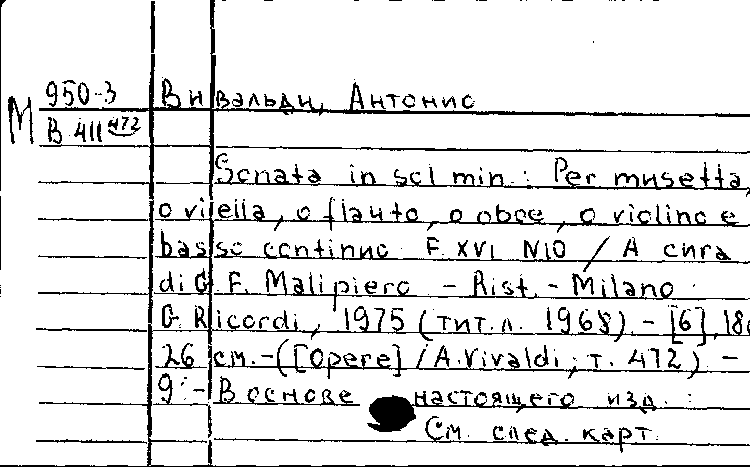 950-3 Вивальди, Антонио
М В 411 472
Sonata in sol min.: Per musetta,
o viella, o flauto, o oboe, o violino e
basso continuo F. XVI N10 / A cura
di G. F. Malipiero - Rist. - Milano
G. Ricordi, 1975 (тит. л. 1968). - [6], 18с
26 см. - ([Opere] / A. Vivaldi; т. 472) -
9 - В основе настоящего изд.:
См. след. карт.